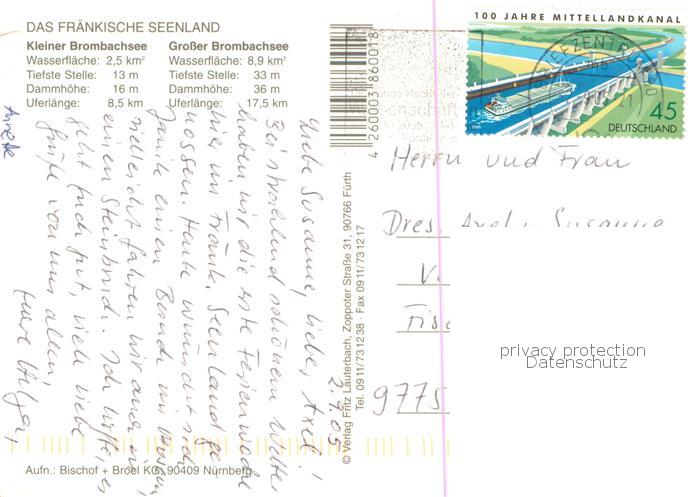 DAS FRÄNKISCHE SEENLAND
Kleiner Brombachsee
Wasserfläche: 2,5 km²
Tiefste Stelle: 13 m
Dammhöhe: 16 m
Uferlänge: 8,5 km
Großer Brombachsee
Wasserfläche: 8,9 km²
Tiefste Stelle: 33 m
Dammhöhe: 36 m
Uferlänge: 17,5 km
2.9.05
Liebe Susanne, lieber Axel!
Bei strahlend schönem Wetter
haben wir die erste Ferienwoche
hier im Fränk. Seenland ge-
nossen. Heute wünscht sich
einen
vielleicht fahren wir auch in
einen Steinbruch. Ich hoffe, es
geht Euch gut, viele liebe
Grüße von uns allen,
Eure Helga,
Annette
Aufn.: Bischof + Broel KG, 90409 Nürnberg
© Verlag Fritz Lauterbach, Zoppoter Straße 31, 90766 Fürth
Tel. 0911/731238 · Fax 0911/731217
4 260003 860018
100 JAHRE MITTELLANDKANAL
45
DEUTSCHLAND
BRIEFZENTRUM
Herrn und Frau
Dres. Axel u. Susanne
V.
Fis
9775
privacy protection
Datenschutz